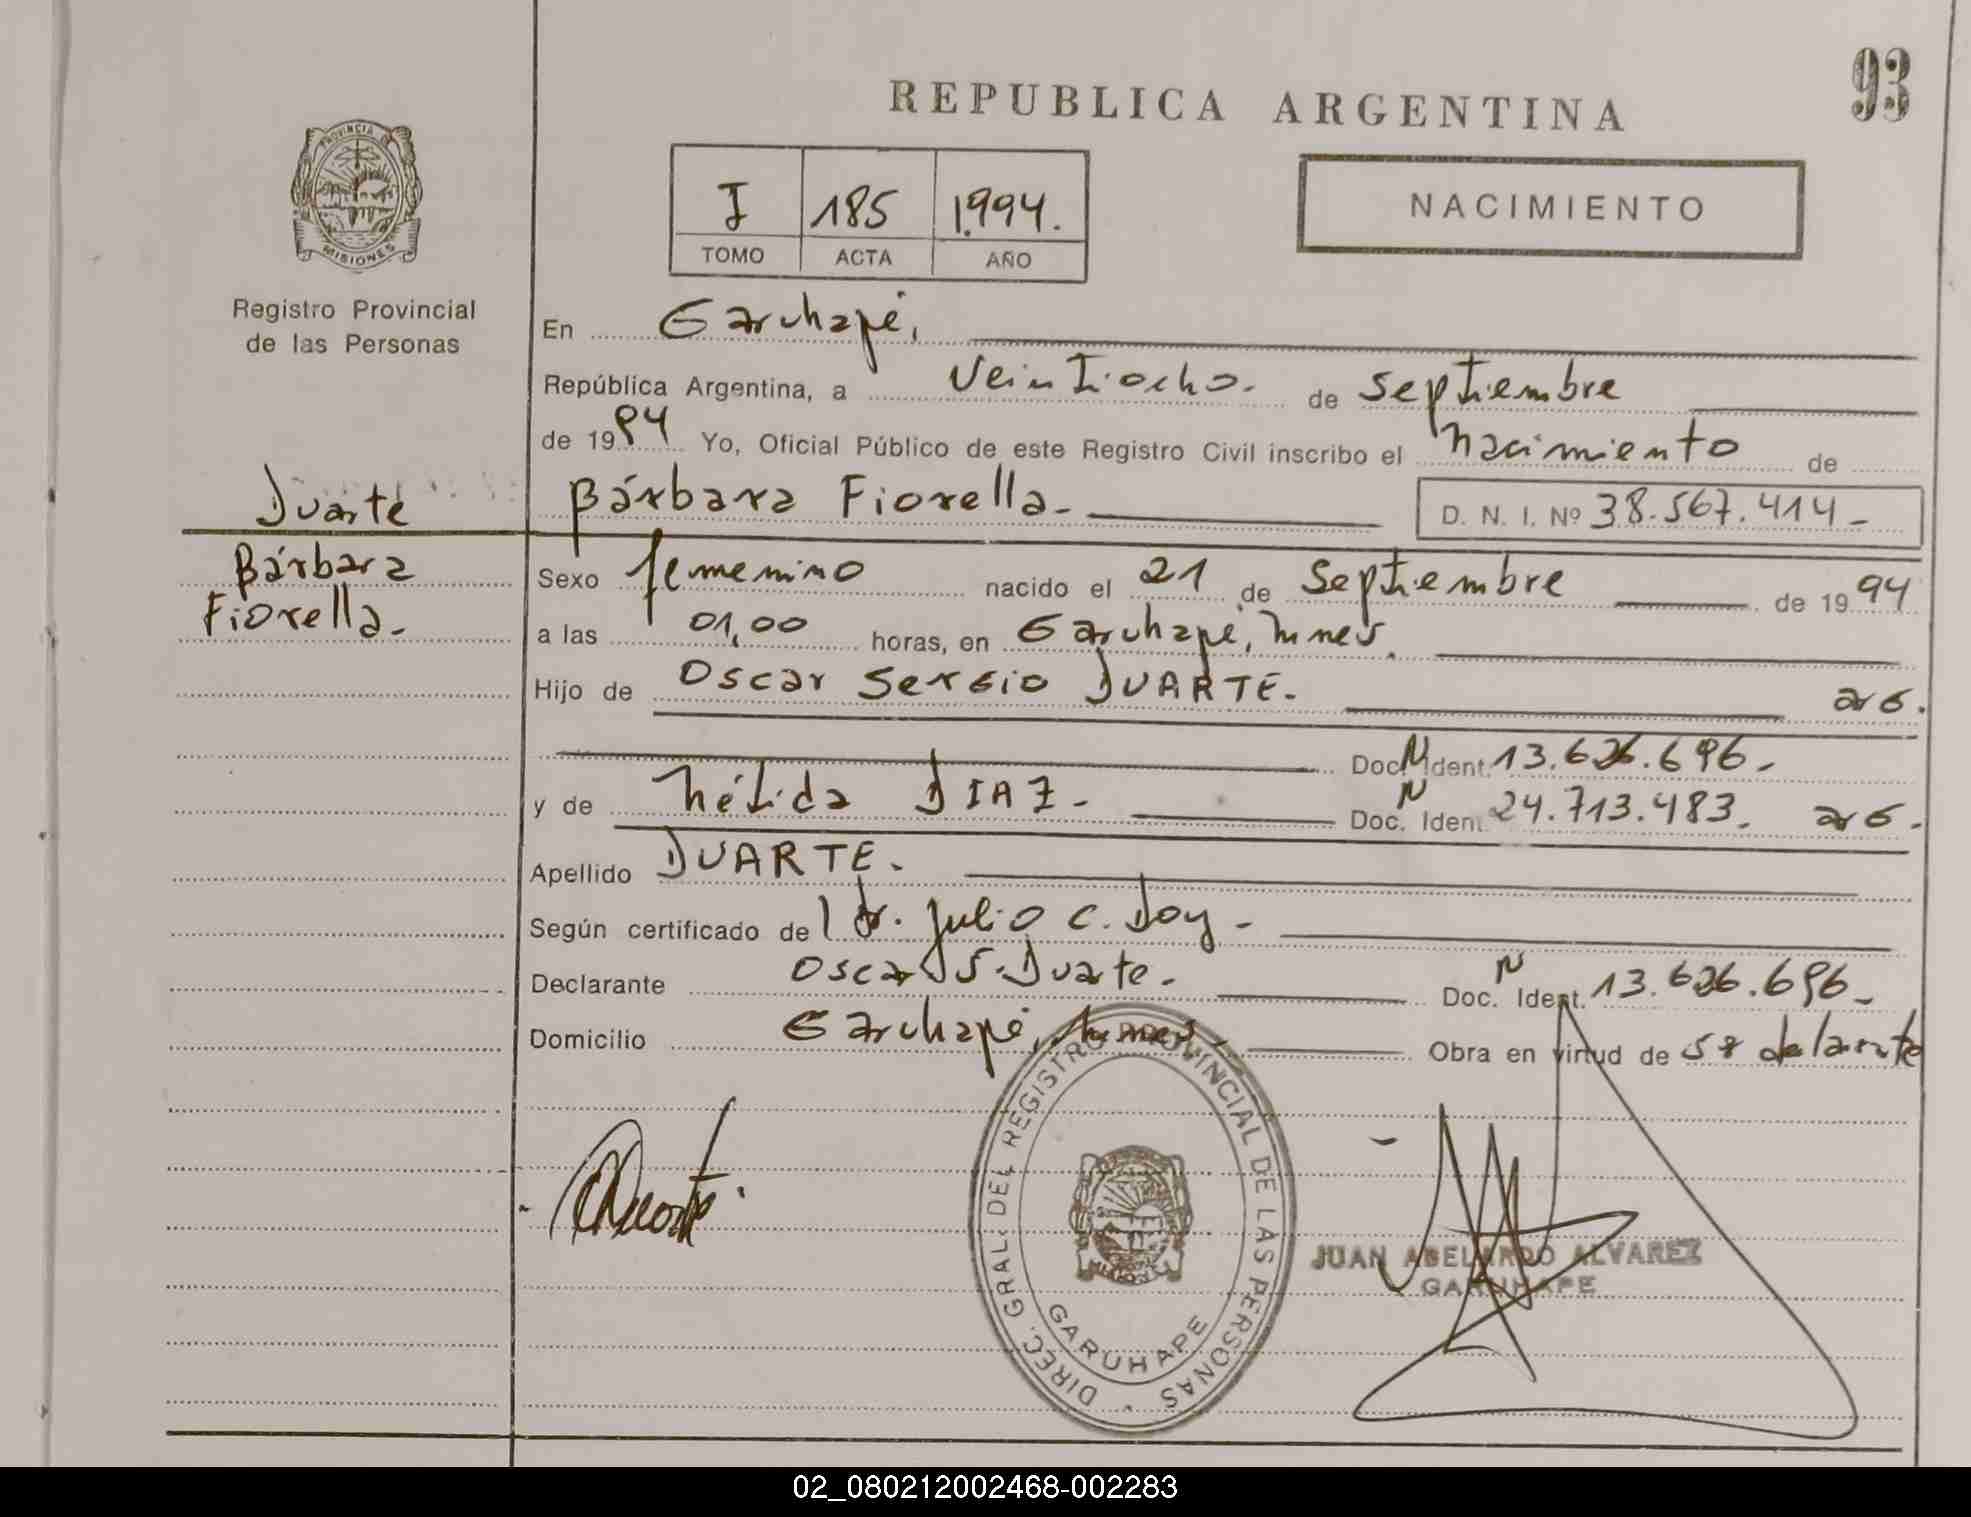 93
REPUBLICA ARGENTINA
PROVINCIA DE
MISIONES
Registro Provincial
de las Personas
I 185 1.994.
TOMO ACTA AÑO
NACIMIENTO
En Garuhapé,
República Argentina, a Veintiocho. de Septiembre
de 1994 Yo, Oficial Público de este Registro Civil inscribo el Nacimiento de
Bárbara Fiorella.- D. N. I. Nº 38.567.414-
Duarte
Bárbara
Fiorella.-
Sexo femenino nacido el 21 de Septiembre de 1994
a las 01,00 horas, en Garuhapé, Mnes.
Hijo de Oscar Sergio DUARTE.- arg.
Doc. N Ident. 13.626.696.-
y de Nélida DIAZ.- Doc. N Ident. 24.713.483. arg.
Apellido DUARTE.-
Según certificado de l dr. Julio C. Doy-
Declarante Oscar S. Duarte.- Doc. N Ident. 13.626.696-
Domicilio Garuhapé, Mnes. Obra en virtud de ser declarante
DIREC. GRAL. DEL REGISTRO PROVINCIAL DE LAS PERSONAS
GARUHAPE
JUAN ABELARDO ALVAREZ
GARUHAPE
02_080212002468-002283